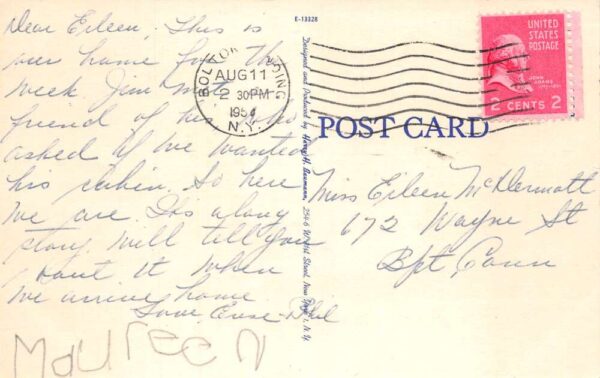 Dear Eileen, This is
our home for the
week Jim met a
friend of his who
asked if we wanted
his cabin. So here
we are. Its a long
story will tell you
about it when
we arrive home
Love
Maureen
E-13328
Designed and Produced by Harry H. Baumann, 214-6 West Street, New York 1, N.Y.
BOLTON LANDING
AUG 11
2 30 PM
1954
N.Y.
UNITED
STATES
POSTAGE
JOHN
ADAMS
2 CENTS 2
POST CARD
Miss Eileen McDermott
672 Wayne St
Bpt Conn